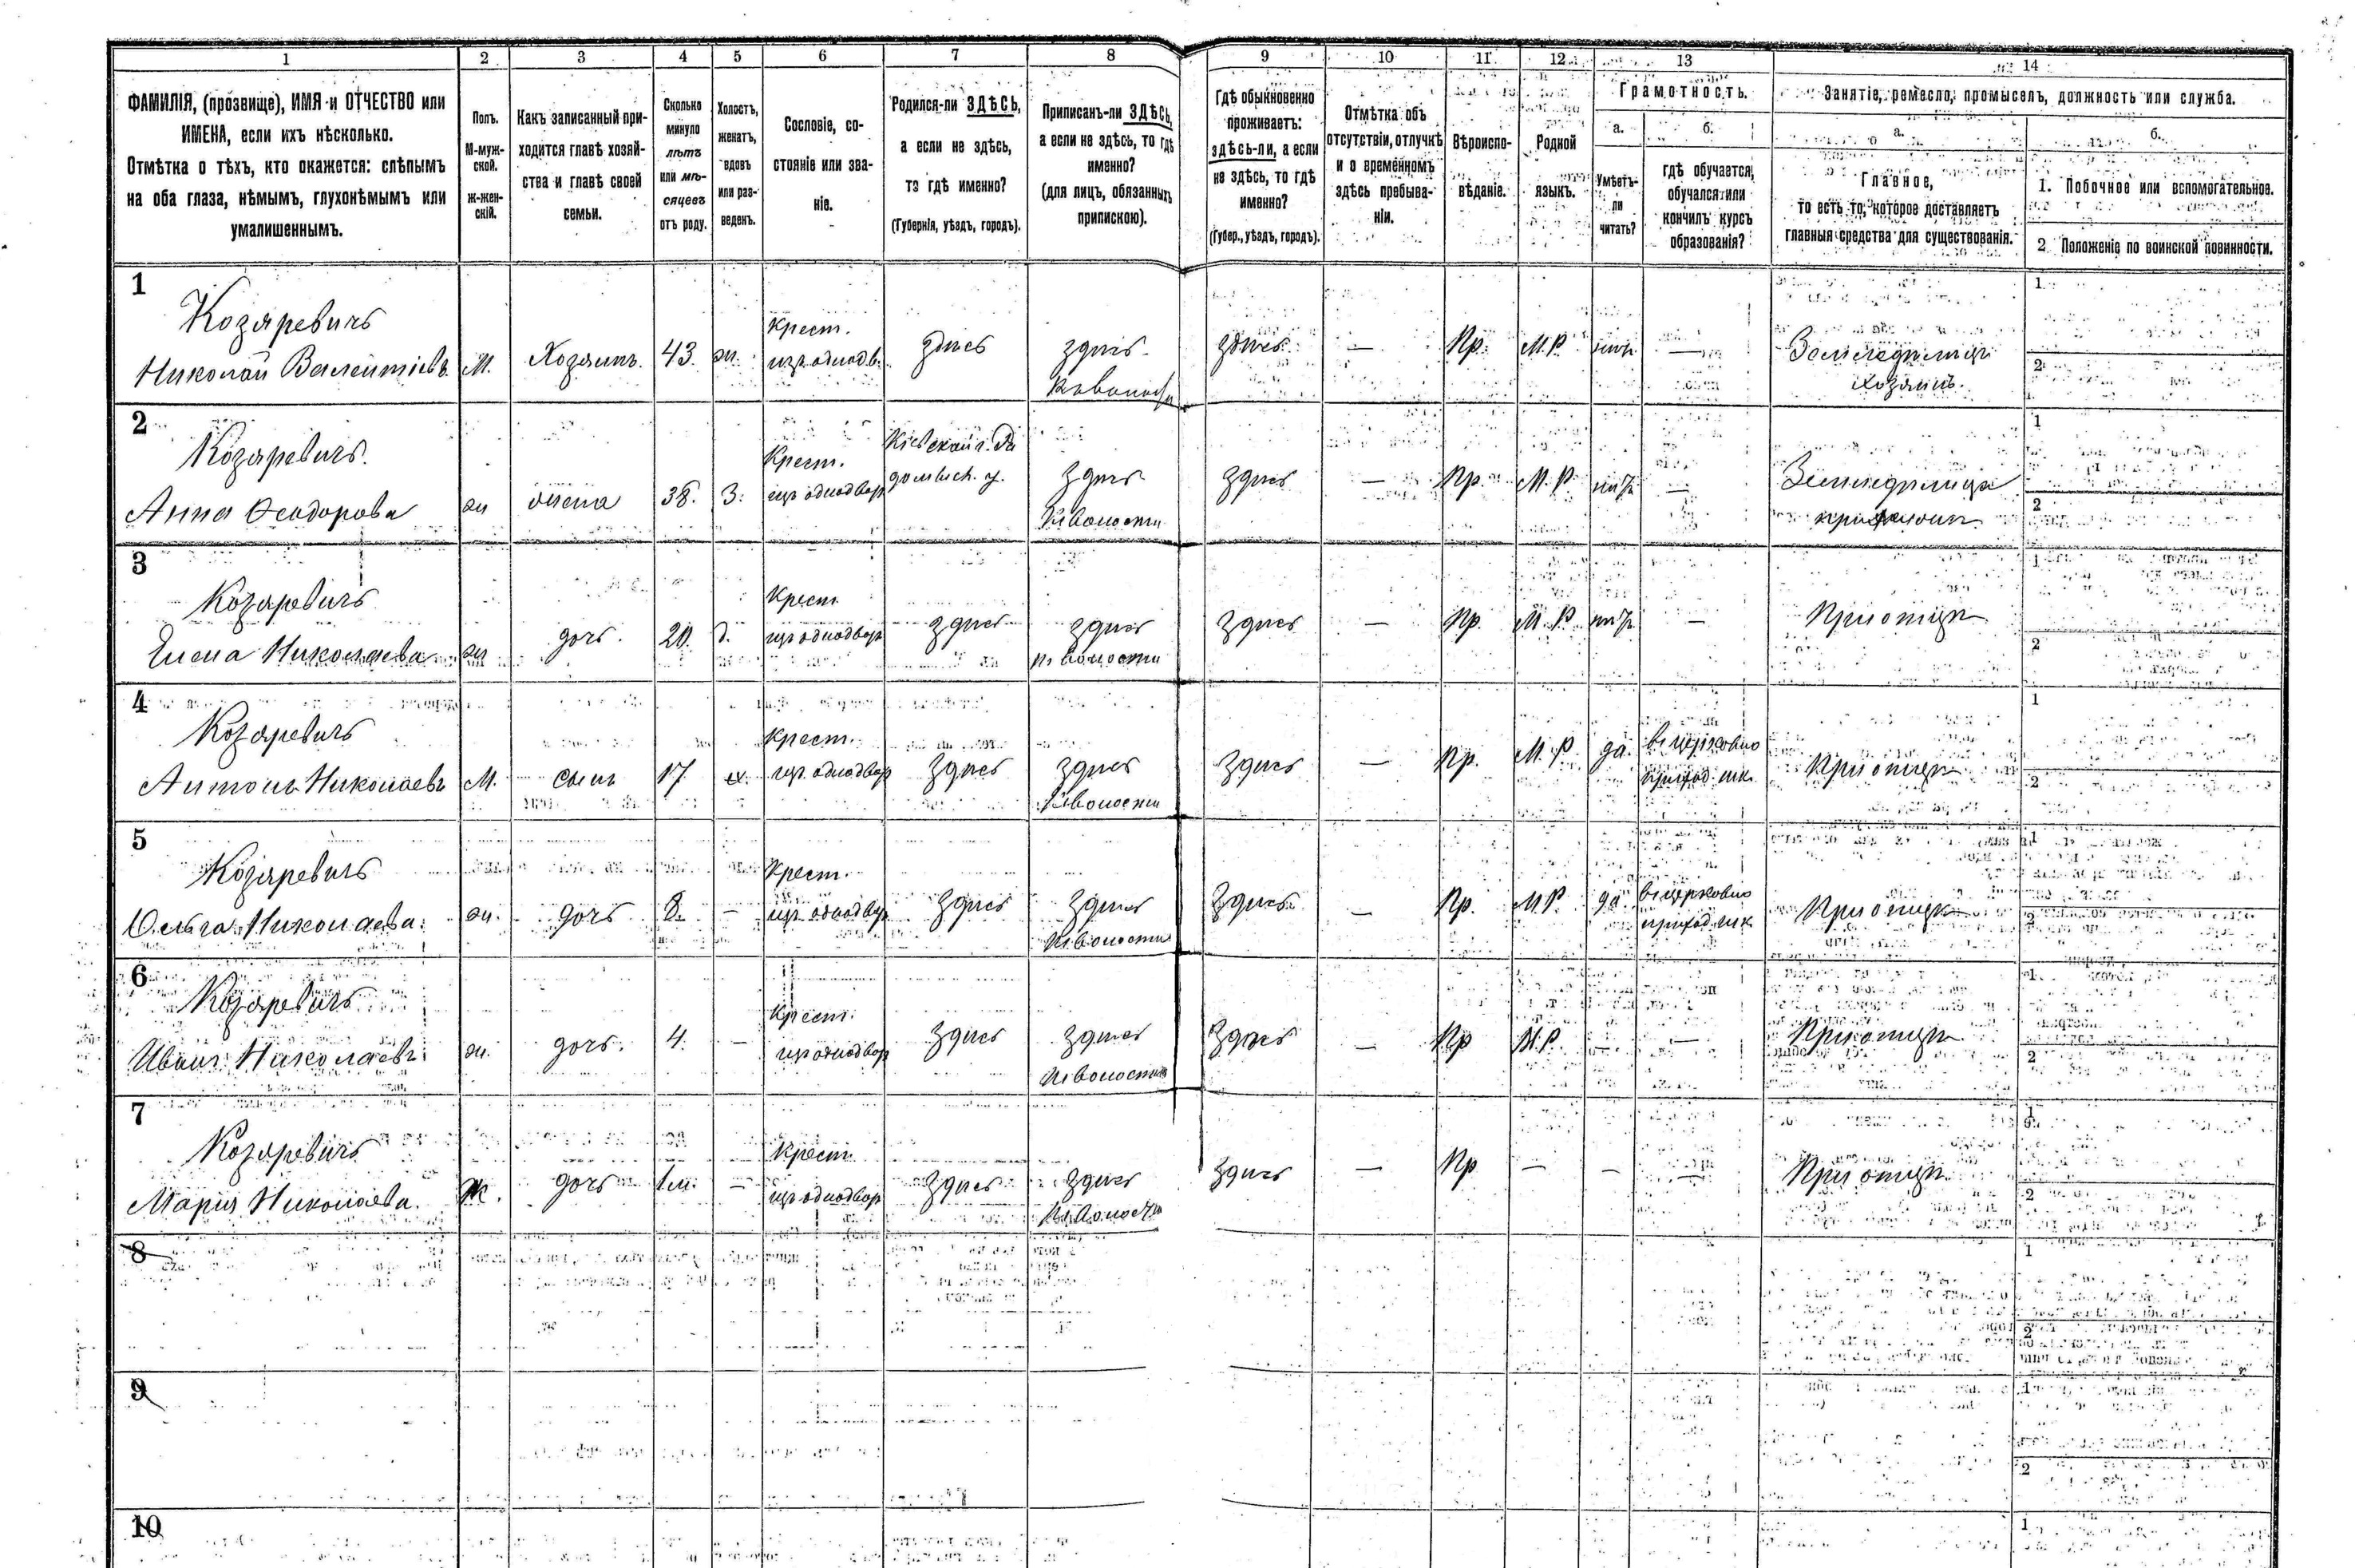 1 2 3 4 5 6 7 8 9 10 11 12 13 14
ФАМИЛІЯ, (прозвище), ИМЯ и ОТЧЕСТВО или
ИМЕНА, если ихъ нѣсколько.
Отмѣтка о тѣхъ, кто окажется: слѣпымъ
на оба глаза, нѣмымъ, глухонѣмымъ или
умалишеннымъ.
Полъ.
М-муж-
ской.
ж-жен-
скій.
Какъ записанный при-
ходится главѣ хозяй-
ства и главѣ своей
семьи.
Сколько
минуло
лѣтъ
или мѣ-
сяцевъ
отъ роду.
Холостъ,
женатъ,
вдовъ
или раз-
веденъ.
Сословіе, со-
стояніе или зва-
ніе.
Родился-ли ЗДѢСЬ,
а если не здѣсь,
то гдѣ именно?
(Губернія, уѣздъ, городъ).
Приписанъ-ли ЗДѢСЬ,
а если не здѣсь, то гдѣ
именно?
(для лицъ, обязанныхъ
припискою).
Гдѣ обыкновенно
проживаетъ:
здѣсь-ли, а если
не здѣсь, то гдѣ
именно?
(Губер., уѣздъ, городъ).
Отмѣтка объ
отсутствіи, отлучкѣ
и о временномъ
здѣсь пребыва-
ніи.
Вѣроиспо-
вѣданіе.
Родной
языкъ.
Грамотность.
а.
Умѣетъ-
ли
читать?
б.
гдѣ обучается,
обучался или
кончилъ курсъ
образованія?
Занятіе, ремесло, промыселъ, должность или служба.
а.
Главное,
то есть то, которое доставляетъ
главныя средства для существованія.
б.
1. Побочное или вспомогательное.
2. Положеніе по воинской повинности.
1
Козаревичъ
Николай Валентіевъ М. Хозяинъ. 43. ж.
Крест.
изъ однодв.
здѣсь
здѣсь
здѣсь — Пр. М.Р. —
Земледѣлецъ
хозяинъ.
1.
2
2
Козаревичъ.
Анна Ѳеодорова ж жена 38. З.
Крест.
изъ однодвор
Кіевской г. Ра
домысл. у.
здѣсь
волости
здѣсь — Пр. М.Р. —
Земледѣлица
1
2
3
Козаревичъ
Елена Николаева ж дочь. 20. д.
Крест
изъ однодвор
здѣсь
здѣсь
волости
здѣсь — Пр. М.Р. —
При отцѣ
1
2
4
Козаревичъ
Антонъ Николаевъ М. сынъ 17 х.
Крест.
изъ однодвор
здѣсь
здѣсь
волости
здѣсь — Пр. М.Р. да.
въ церковно
приход. шк.
При отцѣ
1
2
5
Козаревичъ
Ольга Николаева. ж. дочь 8. —
Крест.
изъ однодвор
здѣсь
здѣсь
волости
здѣсь — Пр. М.Р. да.
въ церковно
приход. шк.
При отцѣ
1
2
6
Козаревичъ
Иванъ Николаевъ ж. дочь. 4. —
Крест.
изъ однодвор
здѣсь
здѣсь
волости
здѣсь — Пр М.Р. — —
При отцѣ
1.
2
7
Козаревичъ
Марія Николаева. Ж. дочь 1 м. —
Крест
изъ однодвор
здѣсь
здѣсь
здѣсь — Пр — — —
При отцѣ
1
2
8
1
2
9
1
2
10
1